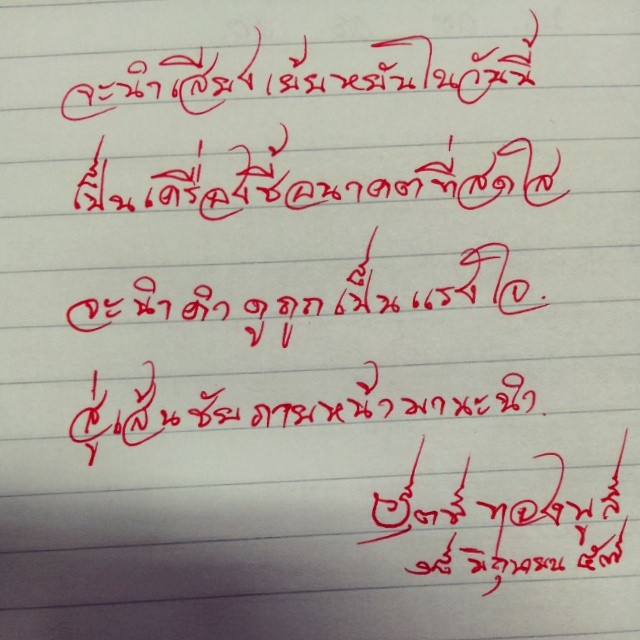 จะนำเสียงเย้ยหยันในวันนี้
เป็นเครื่องชี้อนาคตที่สดใส
จะนำคำดูถูกเป็นแรงใจ.
สู่เส้นชัยภายหน้ามานะนำ.
ทองพูล
๑๘ มิถุนายน ๕๗